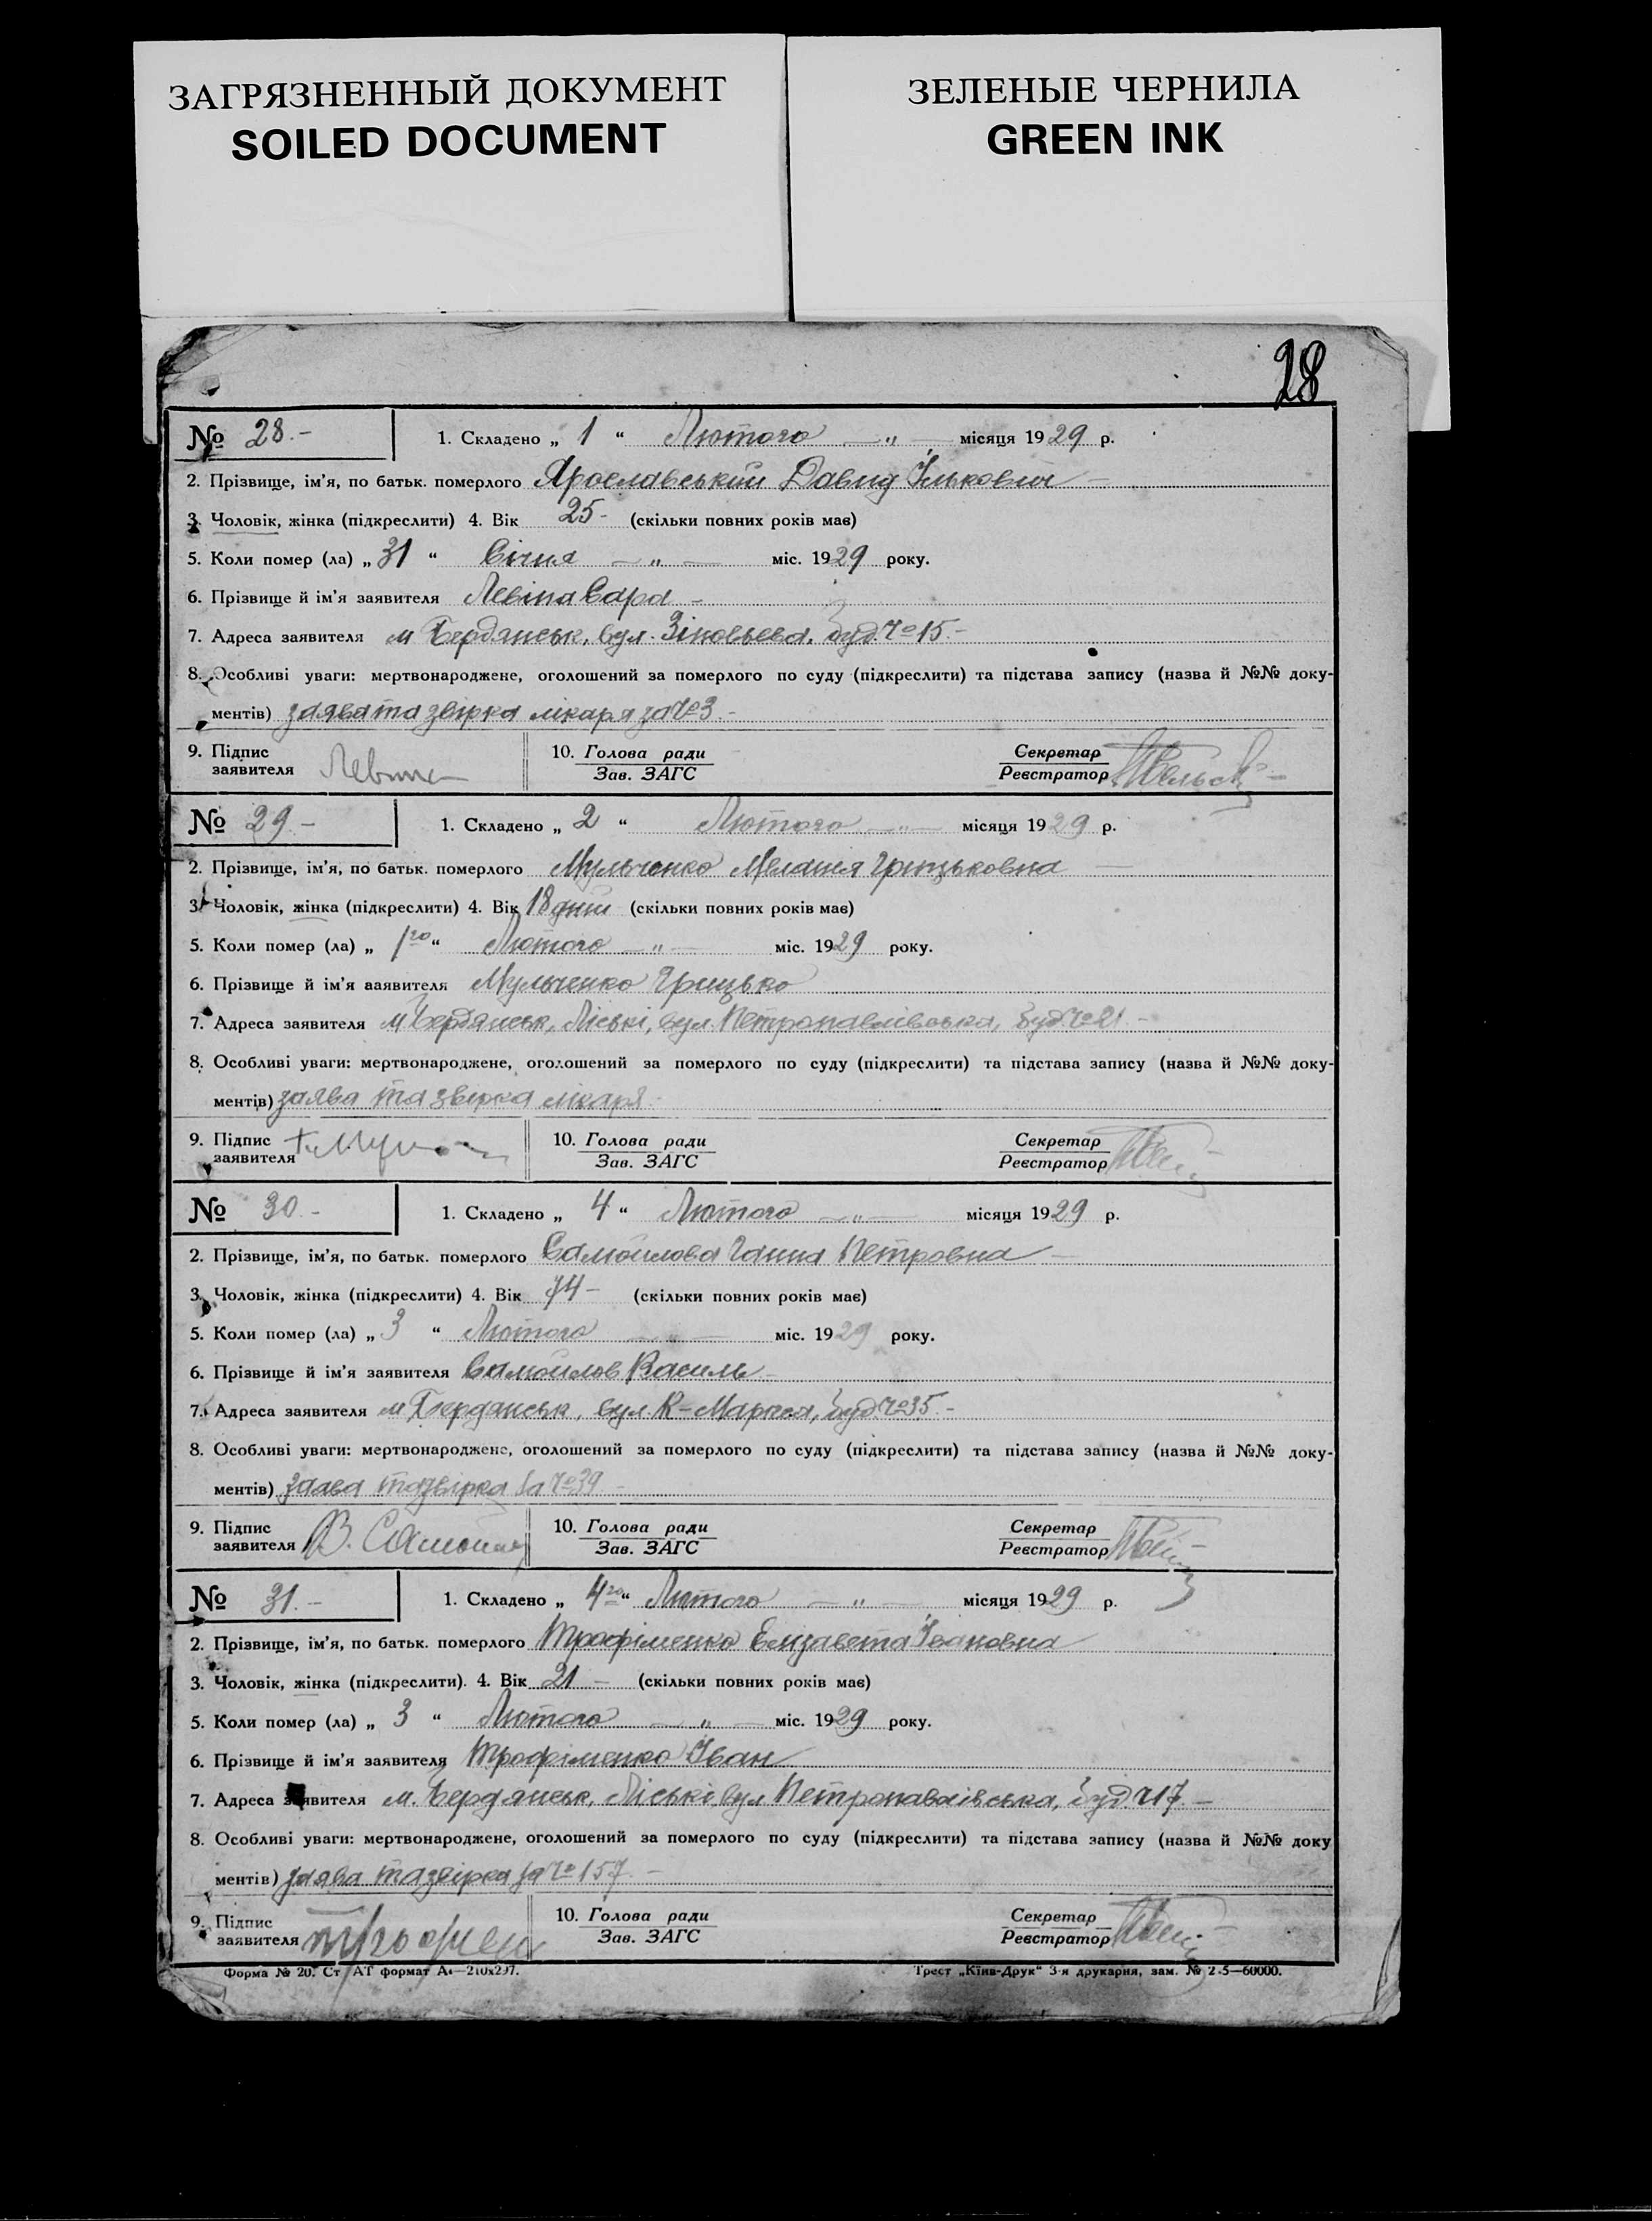 ЗАГРЯЗНЕННЫЙ ДОКУМЕНТ
SOILED DOCUMENT
ЗЕЛЕНЫЕ ЧЕРНИЛА
GREEN INK
28
№ 28.- 1. Складено „ 1 “ Лютого — „ — місяця 1929 р.
2. Прізвище, ім'я, по батьк. померлого Ярославський Давид Ількович —
3. Чоловік, жінка (підкреслити) 4. Вік 25- (скільки повних років має)
5. Коли помер (ла) „ 31 “ Січня — „ — міс. 1929 року.
6. Прізвище й ім'я заявителя Левіна Сара -
7. Адреса заявителя м Бердянськ, вул. Зіновьєва, буд. № 15.-
8. Особливі уваги: мертвонароджене, оголошений за померлого по суду (підкреслити) та підстава запису (назва й №№ доку-
ментів) заява та звірка лікаря за № 3.-
9. Підпис заявителя Левина 10. Голова ради Зав. ЗАГС Секретар Реєстратор
№ 29- 1. Складено „ 2 “ Лютого — „ — місяця 1929 р.
2. Прізвище, ім'я, по батьк. померлого Мульченко Меланія Грицьковна —
3. Чоловік, жінка (підкреслити) 4. Вік 18 днів (скільки повних років має)
5. Коли помер (ла) „ 1го “ Лютого — „ — міс. 1929 року.
6. Прізвище й ім'я заявителя Мульченко Грицько
7. Адреса заявителя м. Бердянськ, Ліскі, вул. Петропавлівська, буд. № 21 -
8. Особливі уваги: мертвонароджене, оголошений за померлого по суду (підкреслити) та підстава запису (назва й №№ доку-
ментів) заява та звірка лікаря.-
9. Підпис заявителя 10. Голова ради Зав. ЗАГС Секретар Реєстратор
№ 30.- 1. Складено „ 4 “ Лютого — „ — місяця 1929 р.
2. Прізвище, ім'я, по батьк. померлого Самойлова Ганна Петровна —
3. Чоловік, жінка (підкреслити) 4. Вік 74- (скільки повних років має)
5. Коли помер (ла) „ 3 “ Лютого — „ — міс. 1929 року.
6. Прізвище й ім'я заявителя Самойлов Василь -
7. Адреса заявителя м Бердянськ, вул. К-Маркса, буд. № 35.-
8. Особливі уваги: мертвонароджене, оголошений за померлого по суду (підкреслити) та підстава запису (назва й №№ доку-
ментів) заява та звірка за № 39.-
9. Підпис заявителя В. Самойлов 10. Голова ради Зав. ЗАГС Секретар Реєстратор
№ 31.- 1. Складено „ 4го “ Лютого — „ — місяця 1929 р.
2. Прізвище, ім'я, по батьк. померлого Трофіменко Елизавета Івановна
3. Чоловік, жінка (підкреслити). 4. Вік 21 - (скільки повних років має)
5. Коли помер (ла) „ 3 “ Лютого — „ — міс. 1929 року.
6. Прізвище й ім'я заявителя Трофіменко Іван
7. Адреса заявителя м. Бердянськ, Ліскі, вул Петропавлівська, буд. № 17.-
8. Особливі уваги: мертвонароджене, оголошений за померлого по суду (підкреслити) та підстава запису (назва й №№ доку
ментів) заява та звірка за № 157.-
9. Підпис заявителя 10. Голова ради Зав. ЗАГС Секретар Реєстратор
Форма № 20. Ст АТ формат А4—210х297. Трест „Київ-Друк“ 3-я друкарня, зам. № 2.5—60000.